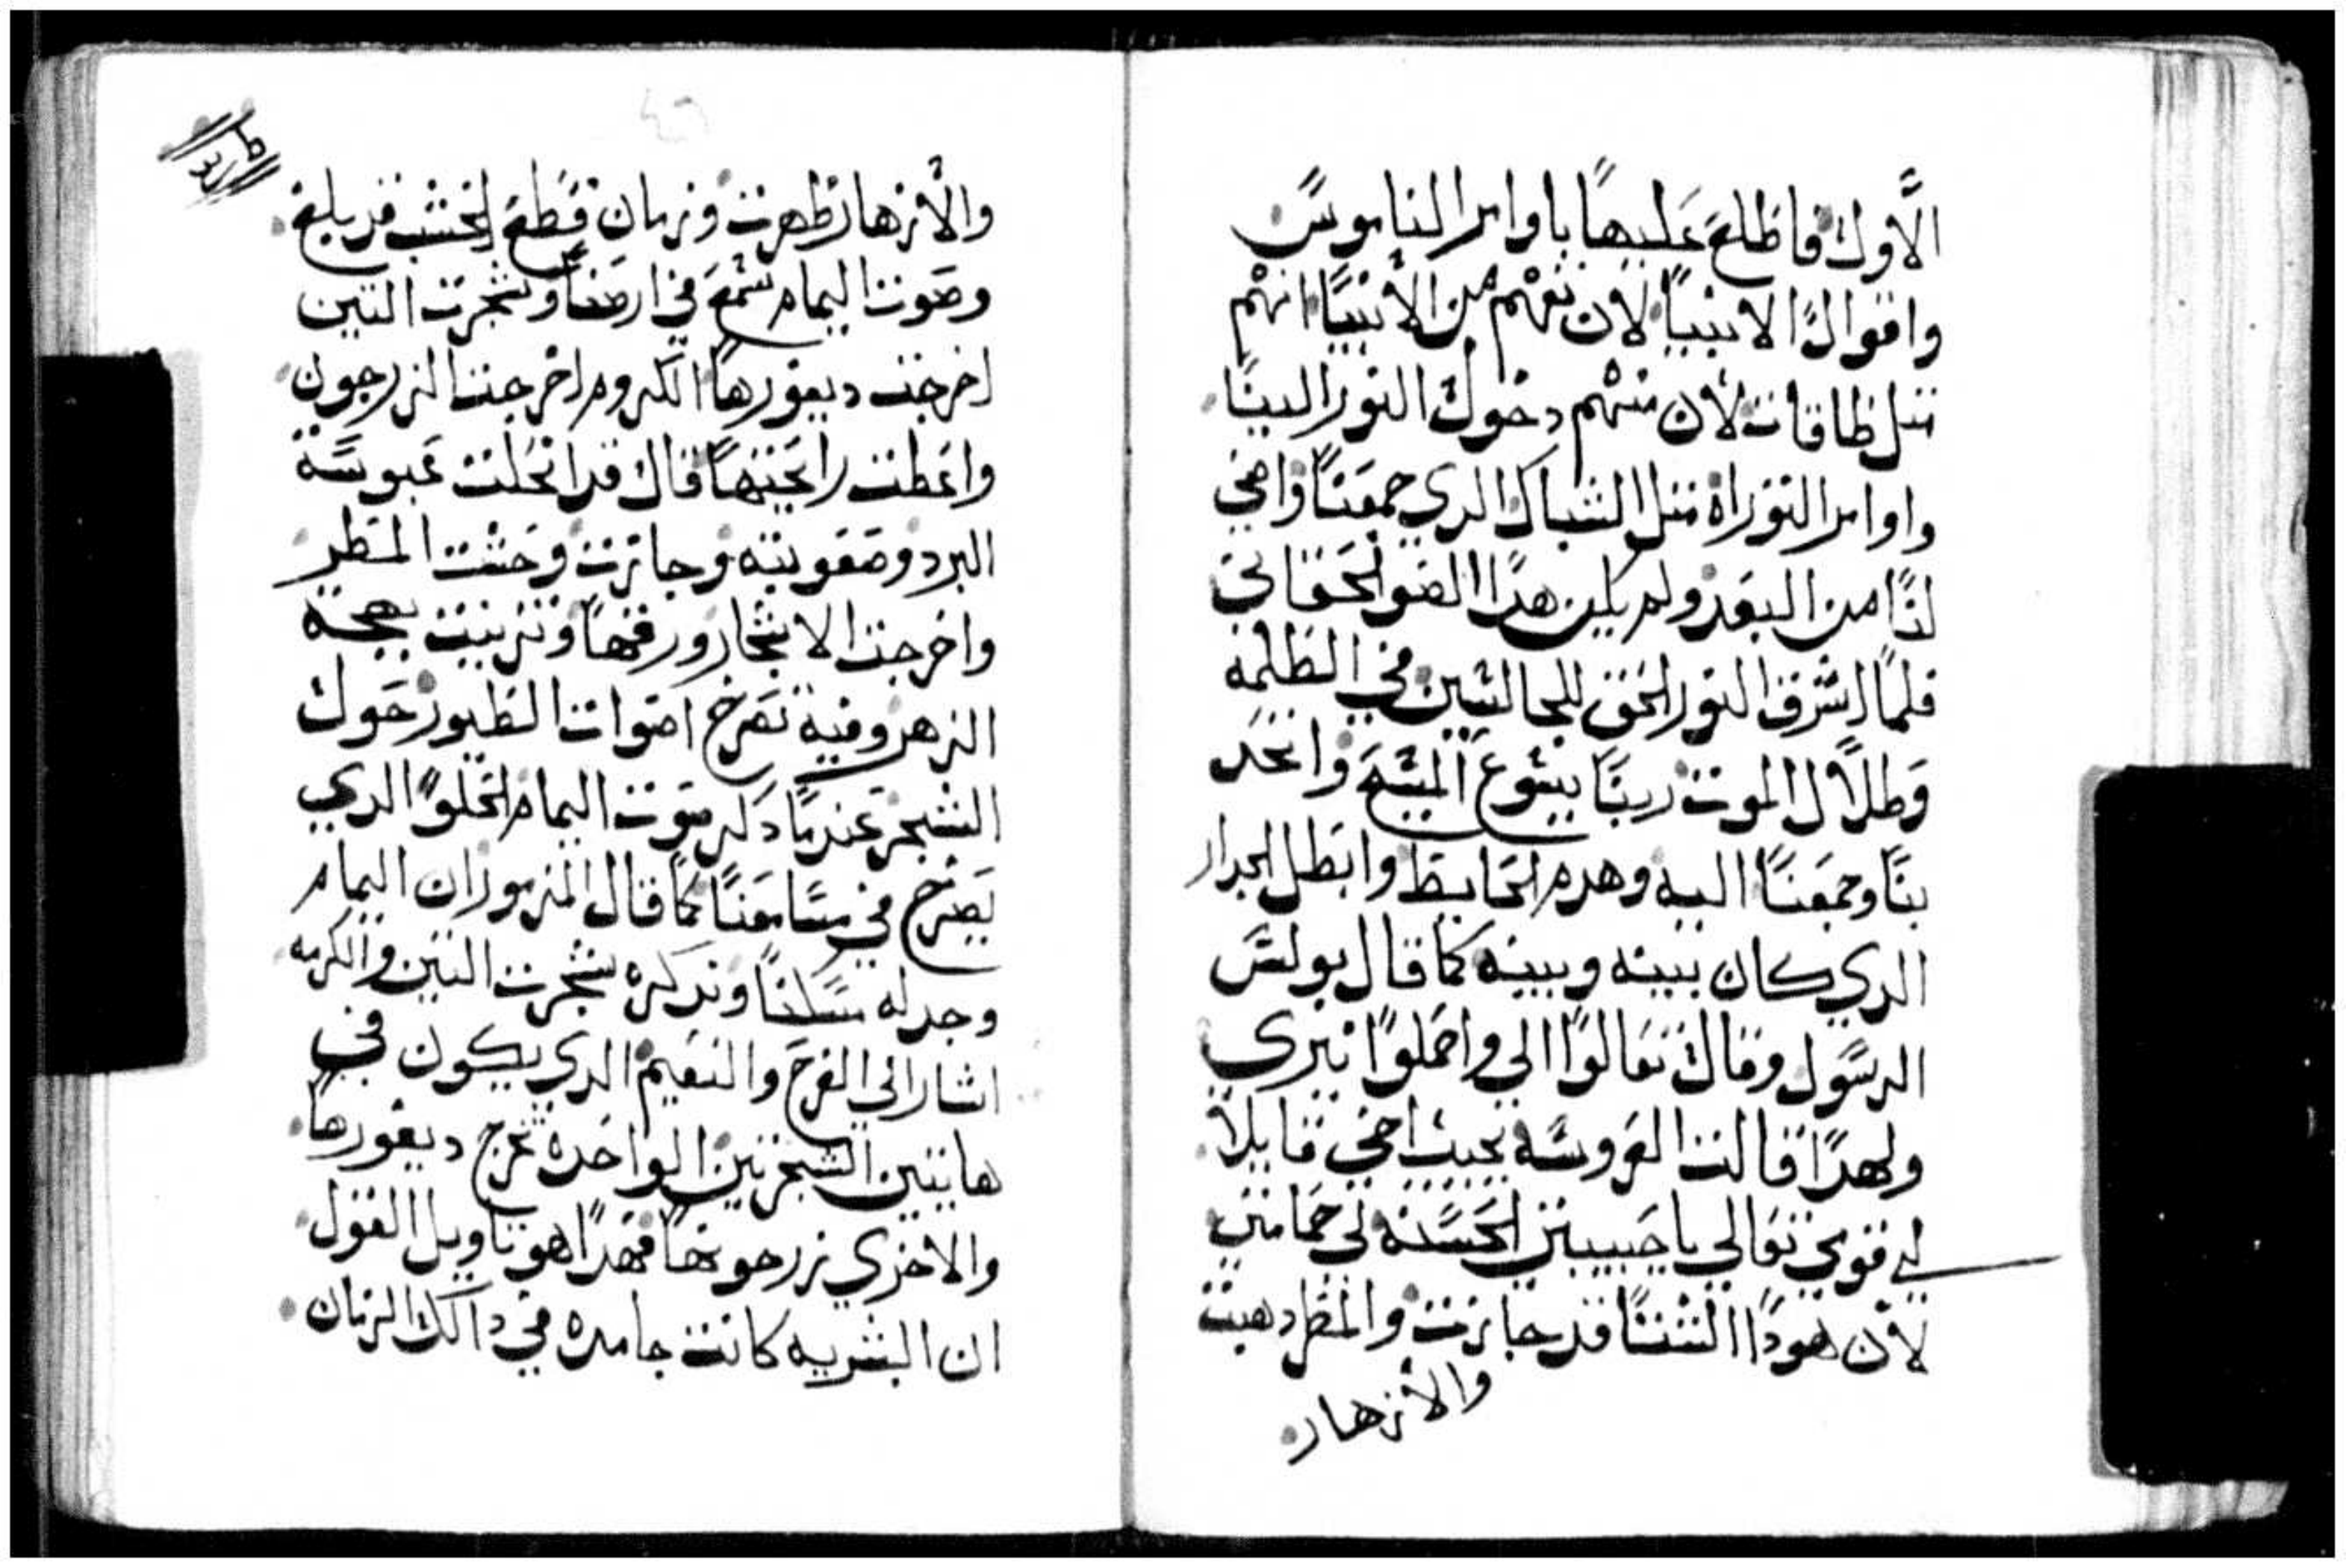 الأول فاطلع عليها باوامر الناموس
واقوال الانبيا لان نفهم من الأنبيا انهم
متل طاقات لان منهم دخول النور الينا
واوامر التوراة متل الشباك الدي جمعنا واضي
لنا من البعد ولم يكن هدا الضو الحقاني
فلما اشرق النور الحق للجالسين في الظلمه
وظلال الموت ربنا يسوع المسيح واتحد
بنا وجمعنا اليه وهدم الحايط وابطل الجدار
الدي كان بينه وبينه كما قال بولس
الرسول وقال تعالوا الي واحملوا نيري
ولهدا قالت العروسه يجيب اخي قايلا
لي قومي تعالي يا حبيبتي الحسنه لي حمامتي
لان هودا الشتا قد جازت والمطر دهبت
والأزهار
والأزهار ظهرت وزمان قطع الخشب قد بلغ
وصوت اليمام سمع في ارضنا وشجرت التين
اخرجت ديفورها الكروم اخرجت الزرجون
واعطت رايحتها قال قد انحلت عبوسة
البرد وصعوبته وجازت وحشت المطر
واخرجت الاشجار ورقها وتزينت بهجة
الزهر وفيه تصرخ اصوات الطيور حول
الشجر عندما دكر صوت اليمام الحلو الدي
يصرخ في مسامعنا كما قال المزمور ان اليمام
وجد له مسكنا وتدكره شجرت التين والكرمه
اشار الي الفرح والنعيم الدي يكون في
هايتين الشجرتين الواحده تخرج ديفورها
والاخري زرجونها فهدا هو تاويل القول
ان البشريه كانت جامده في دالك الزمان